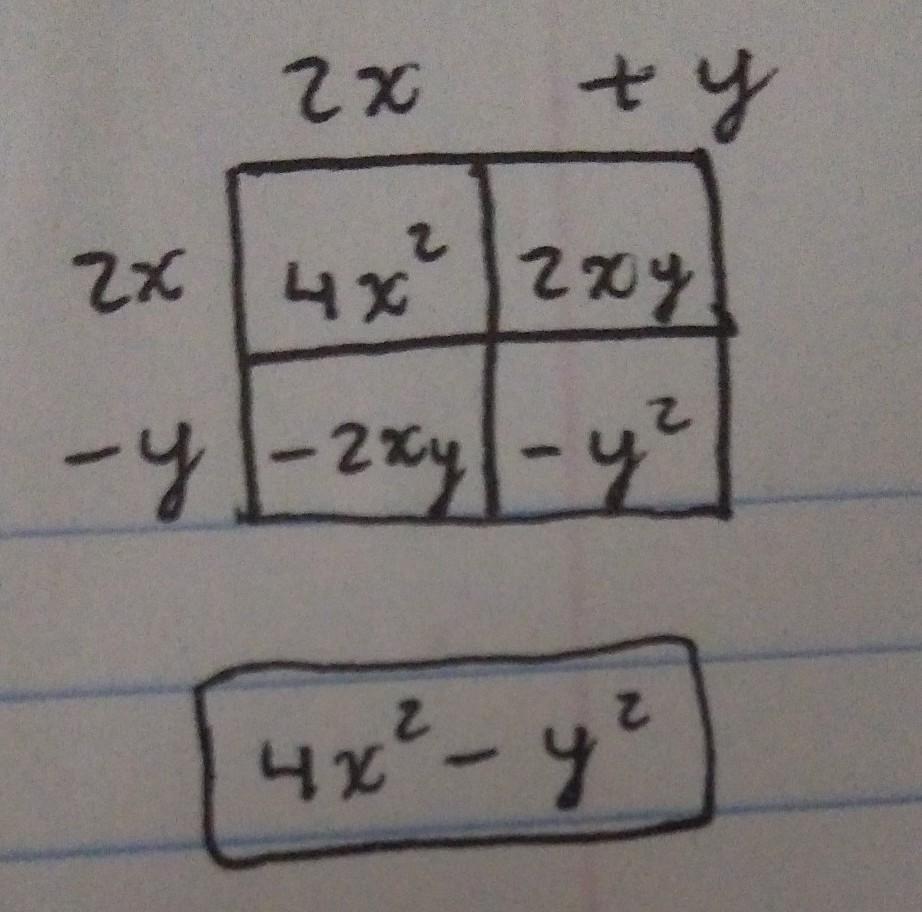 2x + y
2x 4x² 2xy
-y -2xy -y²
4x² - y²